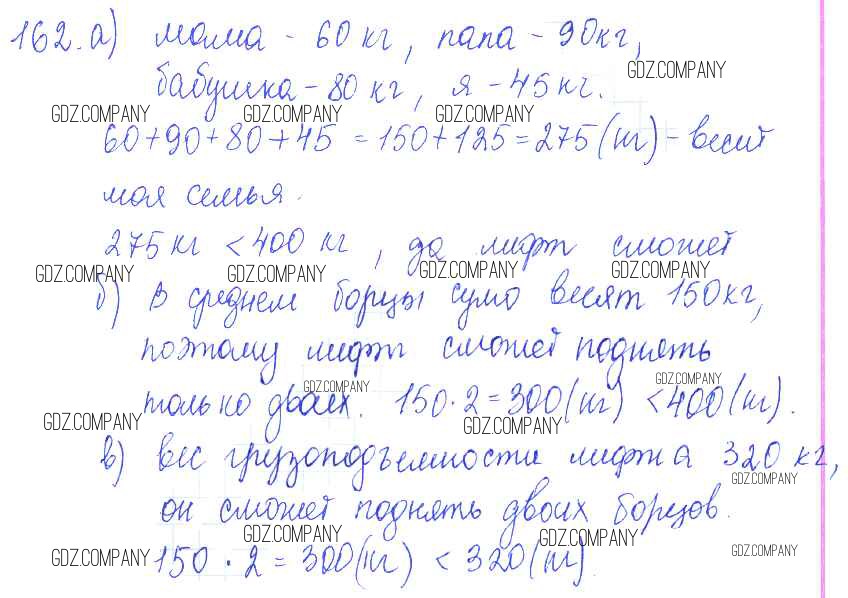 162. а) мама - 60 кг, папа - 90кг,
GDZ.COMPANY
бабушка - 80 кг, я - 45 кг.
GDZ.COMPANY GDZ.COMPANY GDZ.COMPANY
60+90+80+45 = 150+125 = 275 (кг) - весит
моя семья.
275 кг < 400 кг, да лифт сможет
GDZ.COMPANY GDZ.COMPANY GDZ.COMPANY GDZ.COMPANY
б) В среднем борцы сумо весят 150кг,
поэтому лифт сможет поднять
GDZ.COMPANY GDZ.COMPANY
только двоих. 150·2 = 300 (кг) < 400 (кг).
GDZ.COMPANY GDZ.COMPANY
в) вес грузоподъемности лифта 320 кг,
GDZ.COMPANY
он сможет поднять двоих борцов.
GDZ.COMPANY GDZ.COMPANY
150 · 2 = 300 (кг) < 320 (кг)
GDZ.COMPANY GDZ.COMPANY